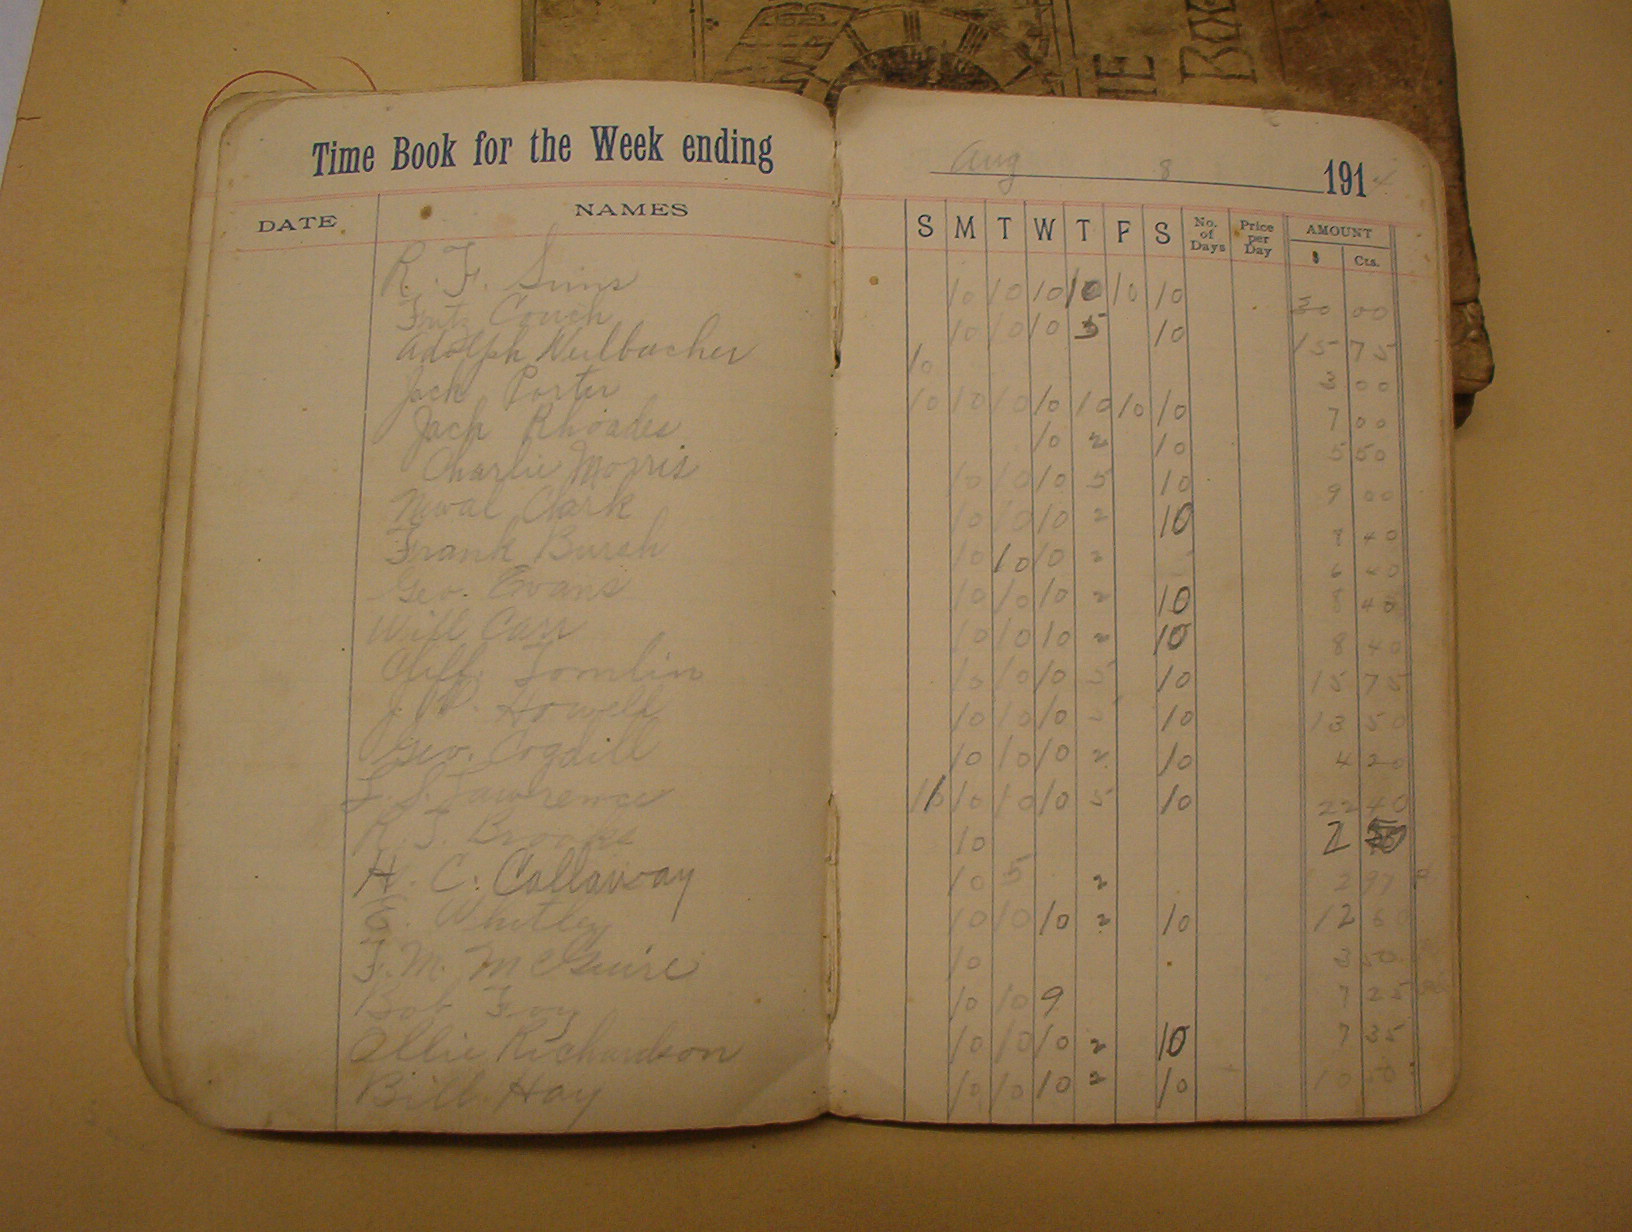 IE
Book
Time Book for the Week ending Aug 8 1914
DATE NAMES S M T W T F S No. of Days Price per Day AMOUNT
$ Cts.
R. F. Sims 10 10 10 10 10 10 30 00
Fritz Couch 10 10 10 5 10 15 75
Adolph Neulbacher 10 3 00
Jack Porter 10 10 10 10 10 10 10 7 00
Jack Rhoades 10 2 10 5 50
Charlie Morris 10 10 10 5 10 9 00
Clark 10 10 10 2 10 8 40
Frank Burch 10 10 10 2 6 40
Geo. Evans 10 10 10 2 10 8 40
Will Carr 10 10 10 2 10 8 40
Cliff Tomlin 10 10 10 5 10 15 75
J. P. Howell 10 10 10 5 10 13 50
Geo. Cogdill 10 10 10 2 10 4 20
Lawrence 10 10 10 5 10 22 40
R. T. Brooks 10 2 50
H. C. Callaway 10 5 2 2 97
E. Whitley 10 10 10 2 10 12 60
F. M. McGuire 10 3 50
Bob Foy 10 10 9 7 25
Ollie Richardson 10 10 10 2 10 7 35
Bill Hay 10 10 10 2 10 10 50